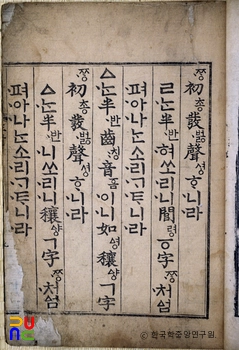 ᄍᆞᆼ初총發벓聲셩ᄒᆞ니라
ㄹᄂᆞᆫ半반혀쏘리니閭령ㆆ字ᄍᆞᆼ처ᅀᅥᆷ
펴아나ᄂᆞᆫ소리ᄀᆞᄐᆞ니라
ㅿᄂᆞᆫ半반齒칭音ᅙᅳᆷ이니如ᅀᅧᆼ穰ᅀᅣᇰㄱ字
ᄍᆞᆼ初총發벓聲셩ᄒᆞ니라
ㅿᄂᆞᆫ半반니쏘리니穰ᅀᅣᇰㄱ字ᄍᆞᆼ처ᅀᅥᆷ
펴아나ᄂᆞᆫ소리ᄀᆞᄐᆞ니라
ⓒ 한국학중앙연구원